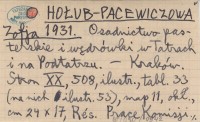 HOŁUB-PACEWICZOWA
Zofja 1931. Osadnictwo pas-
terskie i wędrówki w Tatrach
i na Podtatrzu. — Kraków.
Stron XX, 508, ilustr., tabl. 33
(na nich ilustr. 53), map 11, 8°,
cm 24 x 17, Rés. Prace Komisji